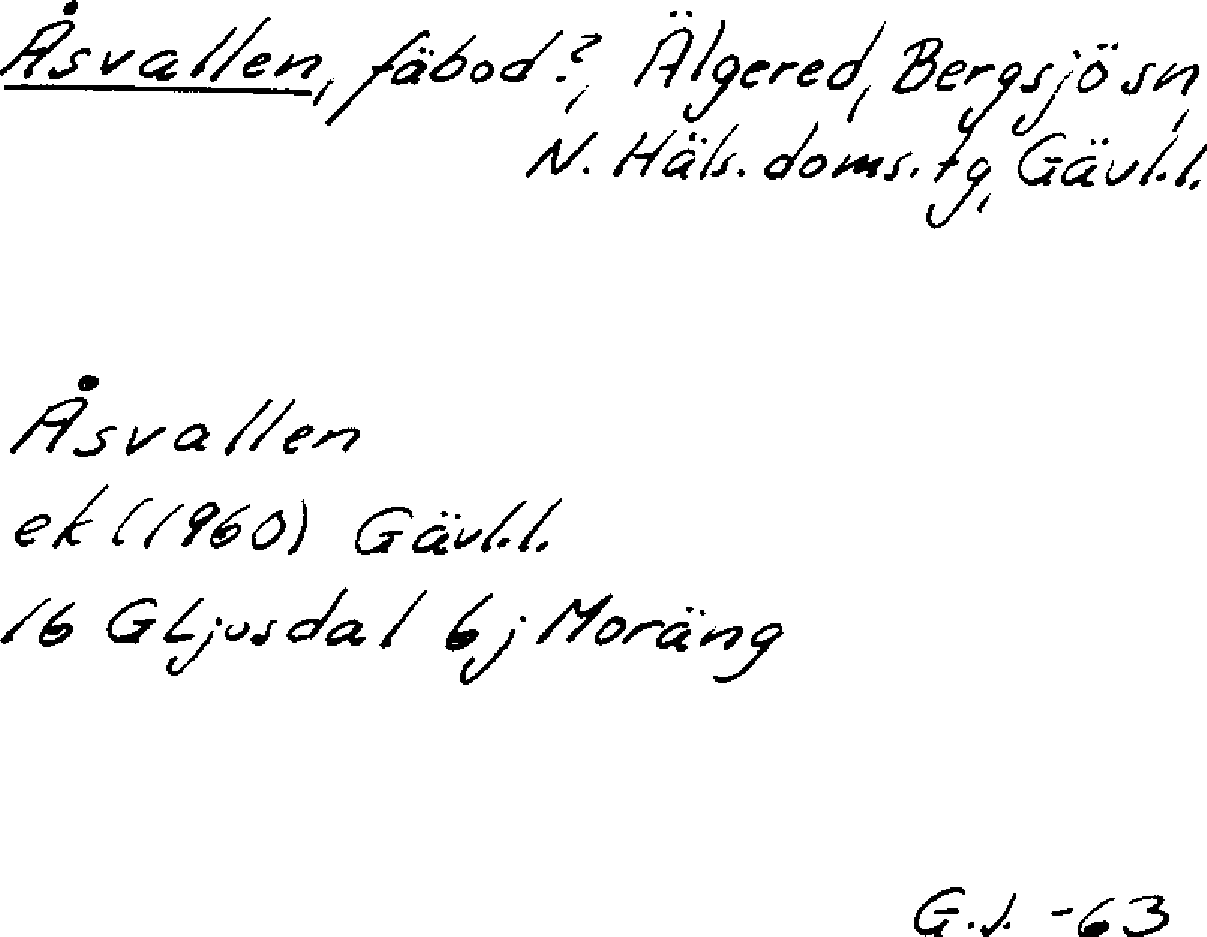 Åsvallen, fäbod?, Älgered, Bergsjö sn,
N. Häls. doms. tg, Gävl.l.
Åsvallen
ek (1960) Gävl.l.
16 G Ljusdal 6j Moräng
G.J. -63